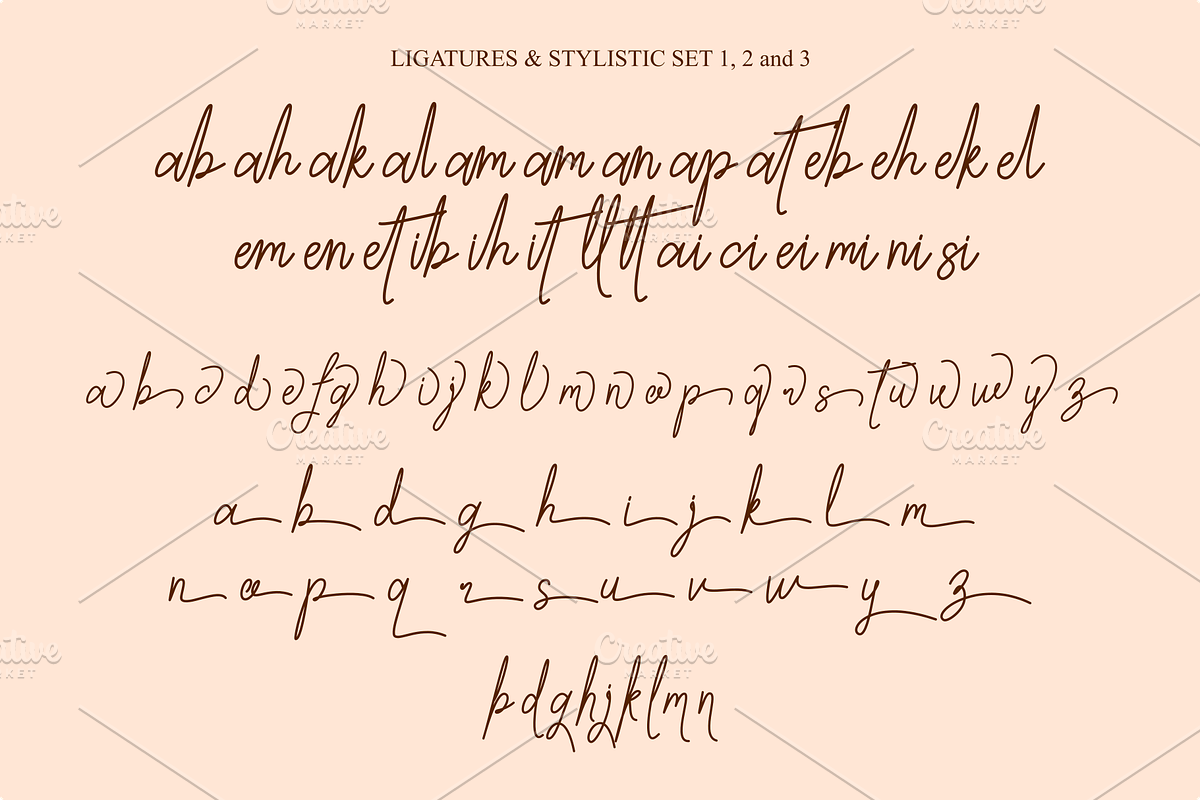 LIGATURES & STYLISTIC SET 1, 2 and 3
ab ah ak al am am an ap at eb eh ek el
em en et ib ih it ll tt ai ci ei mi ni si
a b c d e f g h i j k l m n o p q r s t u v w y z
a b d g h i j k l m
n o p q r s u v w y z
b d g h j k l m n
Creative
MARKET